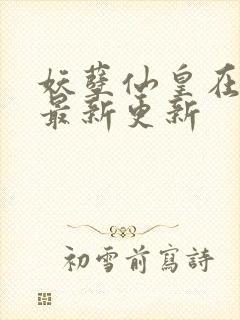 妖孽仙皇在
最新更新
初雪前寫詩